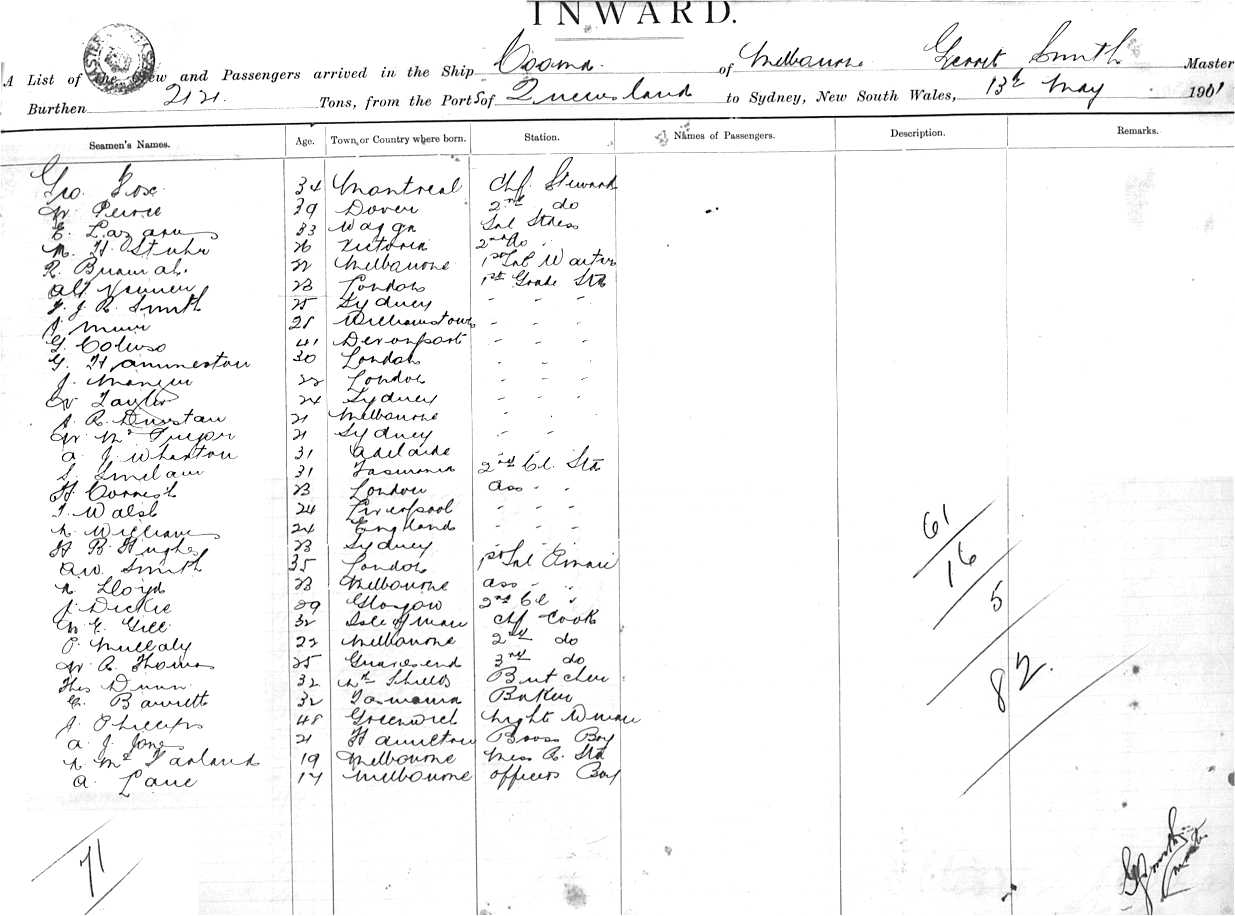 INWARD.
A List of the Crew and Passengers arrived in the Ship Cooma of Melbourne Gerret Smith Master
Burthen 2121 Tons, from the Ports of Queensland to Sydney, New South Wales, 13th May 1901
Seamen's Names. Age. Town, or Country where born. Station. Names of Passengers. Description. Remarks.
Geo. Fox 34 Montreal Chf. Steward
W Peirce 39 Dover 2nd do
E. 33 Wagga Sal Stdess
M. H. Stuhr 26 Victoria 2nd do
R. 22 Melbourne 1st Sal Waiter
Alf 23 London 1st Grade Std
F. J. R. Smith 25 Sydney - - -
J Muir 25 Williamstown - - -
G. 41 Devonport - - -
G. Hammerton 30 London - - -
J. 22 London - - -
W Taylor 24 Sydney - - -
J. R. Dunstan 21 Melbourne - - -
W Mc Gregor 21 Sydney - - -
A. J. Wharton 31 Adelaide
S. Sinclair 31 Tasmania 2nd Cl. Std
H. 23 London Ass - -
T. Walsh 24 Liverpool - - -
Williams 24 England - - -
H B Hughes 23 Sydney
A W Smith 35 London 1st Sal
Lloyd 23 Melbourne Ass - -
J Dickie 29 Glasgow 2nd Cl "
W. E. Gill 32 Isle of Man Chf Cook
P. Mullaly 22 Melbourne 2nd do
W R. Thomas 25 3rd do
Thos Dunn 32 Nth Shields Butcher
Barrett 32 Tasmania Baker
J. Phillips 48 Greenwich Night Wman
A. J. Jones 21 Hamilton Boy
Mc Farland 19 Melbourne Mess R. Std
A. Lane 17 Melbourne Officers Boy
61
16
5
82
71
G Smith
Master